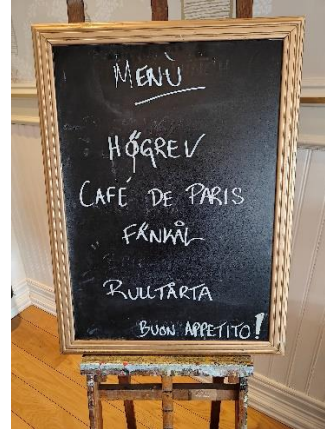 MENÙ
HÖGREV
CAFÉ DE PARIS
FÄNKÅL
RULLTÅRTA
BUON APPETITO!